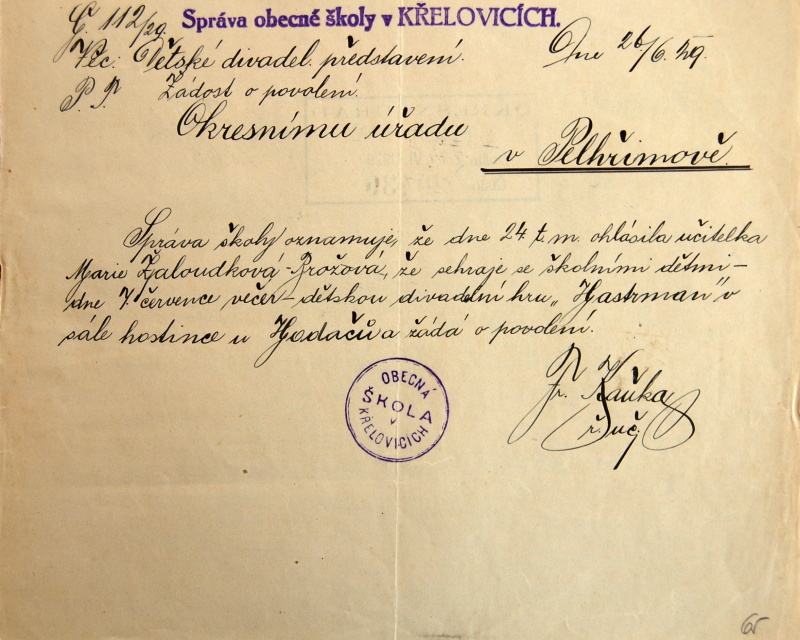 Č. 112/29. Správa obecné školy v KŘELOVICÍCH. Dne 26/6. 29.
Věc: Dětské divadel. představení.
P. P. Žádost o povolení.
Okresnímu úřadu
v Pelhřimově.
Správa školy oznamuje, že dne 24. t. m. ohlásila učitelka
Marie Žaloudková-Brožová, že sehraje se školními dětmi –
dne 7. července večer – dětskou divadelní hru „Hastrman“ v
sále hostince u Hodačů a žádá o povolení.
OBECNÁ
ŠKOLA
v
KŘELOVICÍCH
Fr. Kaňka
ř. uč.